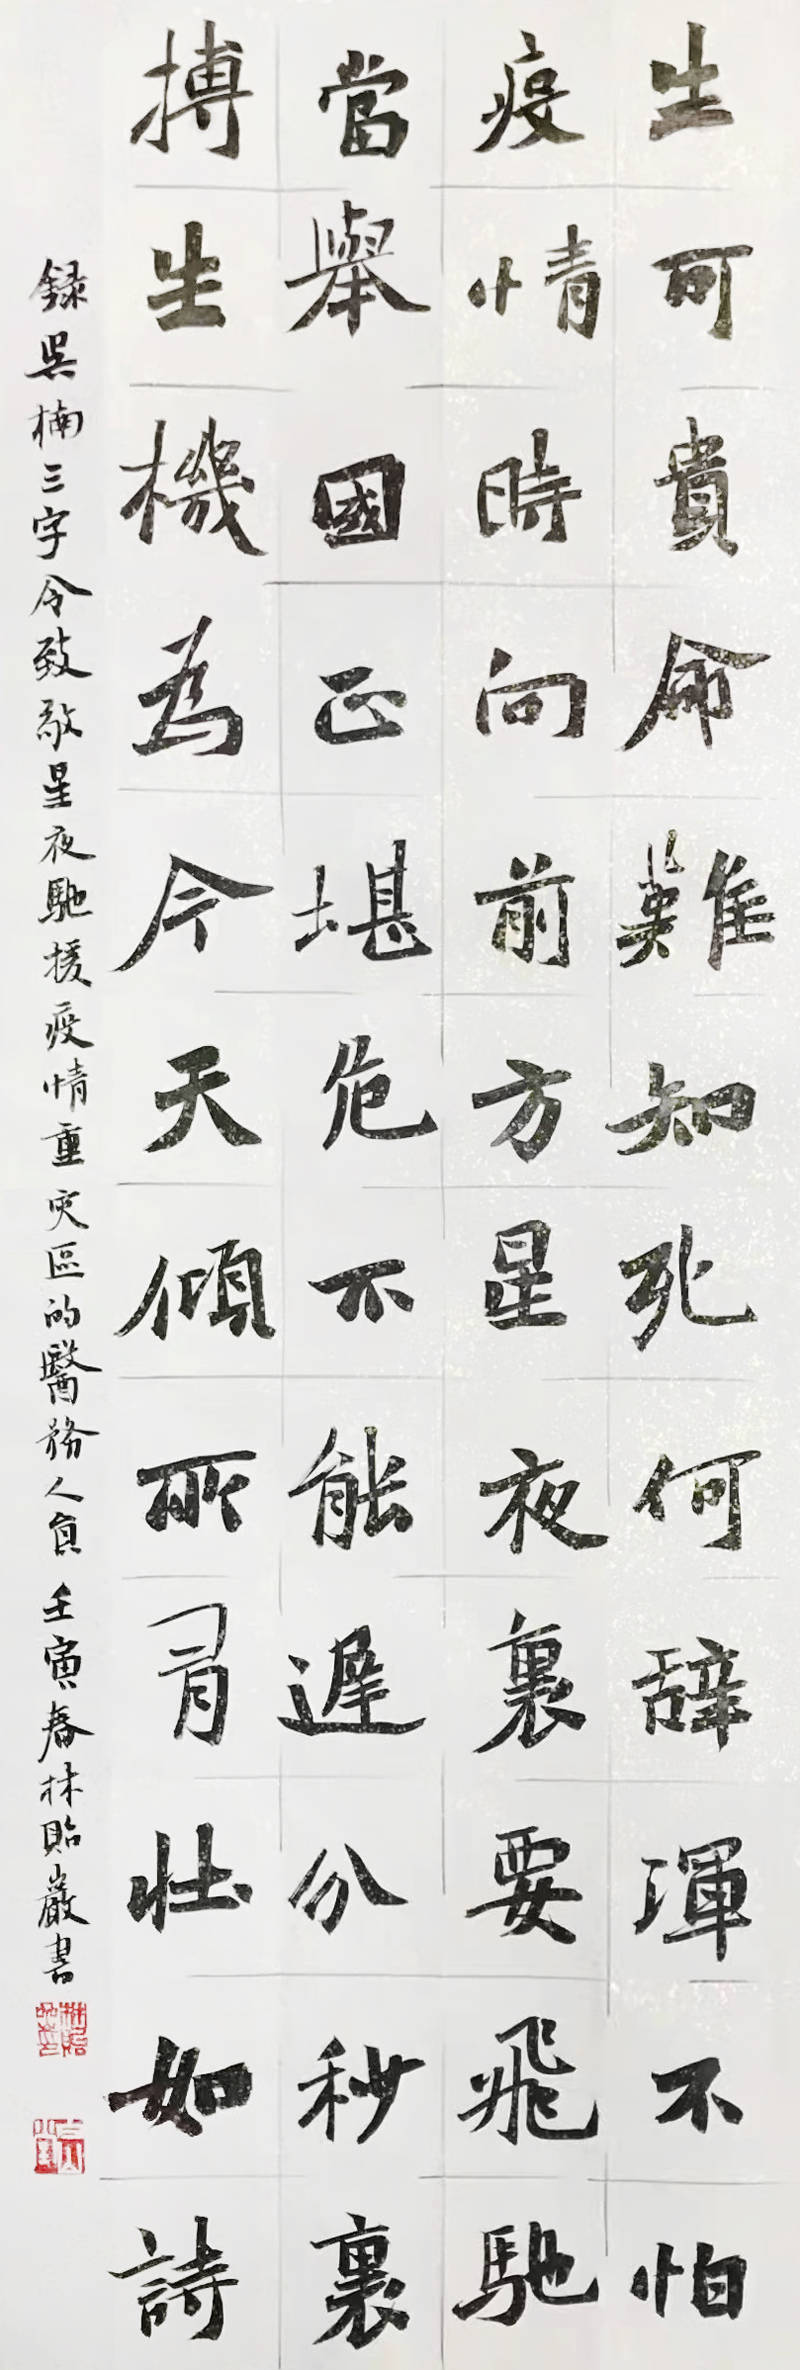 生可貴命難知死何辞渾不怕
疫情時向前方星夜裏要飛馳
當舉國正堪危不能遲分秒裏
搏生機為今天傾所有壯如詩
録吳楠三字令致敬星夜馳援疫情重灾區的醫務人員壬寅春林貽巖書